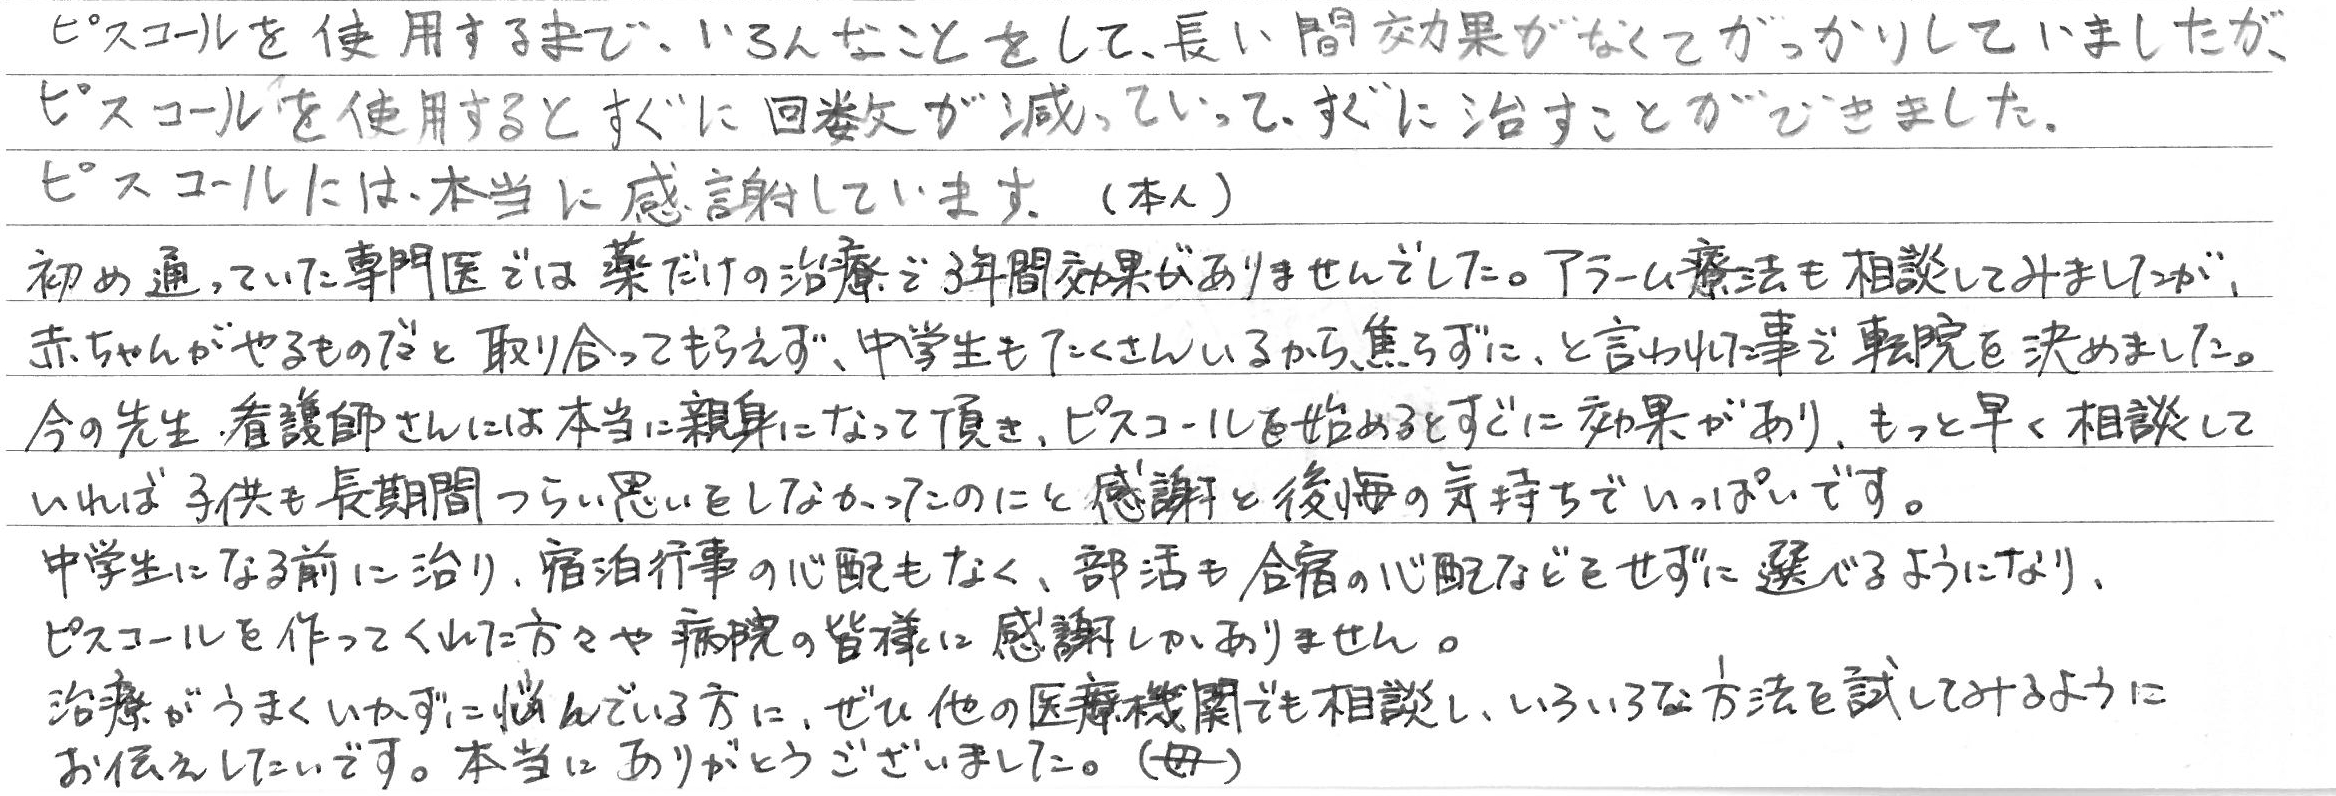 ピスコールを使用するまで、いろんなことをして、長い間効果がなくてがっかりしていましたが、
ピスコールを使用するとすぐに回数が減っていって、すぐに治すことができました。
ピスコールには、本当に感謝しています。（本人）
初め通っていた専門医では薬だけの治療で3年間効果がありませんでした。アラーム療法も相談してみましたが、
赤ちゃんがやるものだと取り合ってもらえず、中学生もたくさんいるから、焦らずに、と言われた事で転院を決めました。
今の先生、看護師さんには本当に親身になって頂き、ピスコールを始めるとすぐに効果があり、もっと早く相談して
いれば子供も長期間つらい思いをしなかったのにと感謝と後悔の気持ちでいっぱいです。
中学生になる前に治り、宿泊行事の心配もなく、部活も合宿の心配などをせずに選べるようになり、
ピスコールを作ってくれた方々や病院の皆様に感謝しかありません。
治療がうまくいかずに悩んでいる方に、ぜひ他の医療機関でも相談し、いろいろな方法を試してみるように
お伝えしたいです。本当にありがとうございました。（母）